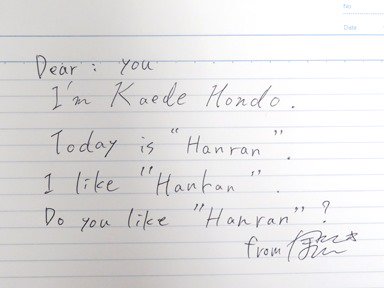 No
Date
Dear : you
I'm Kaede Hondo.
Today is "Hanran".
I like "Hanran".
Do you like "Hanran"?
from